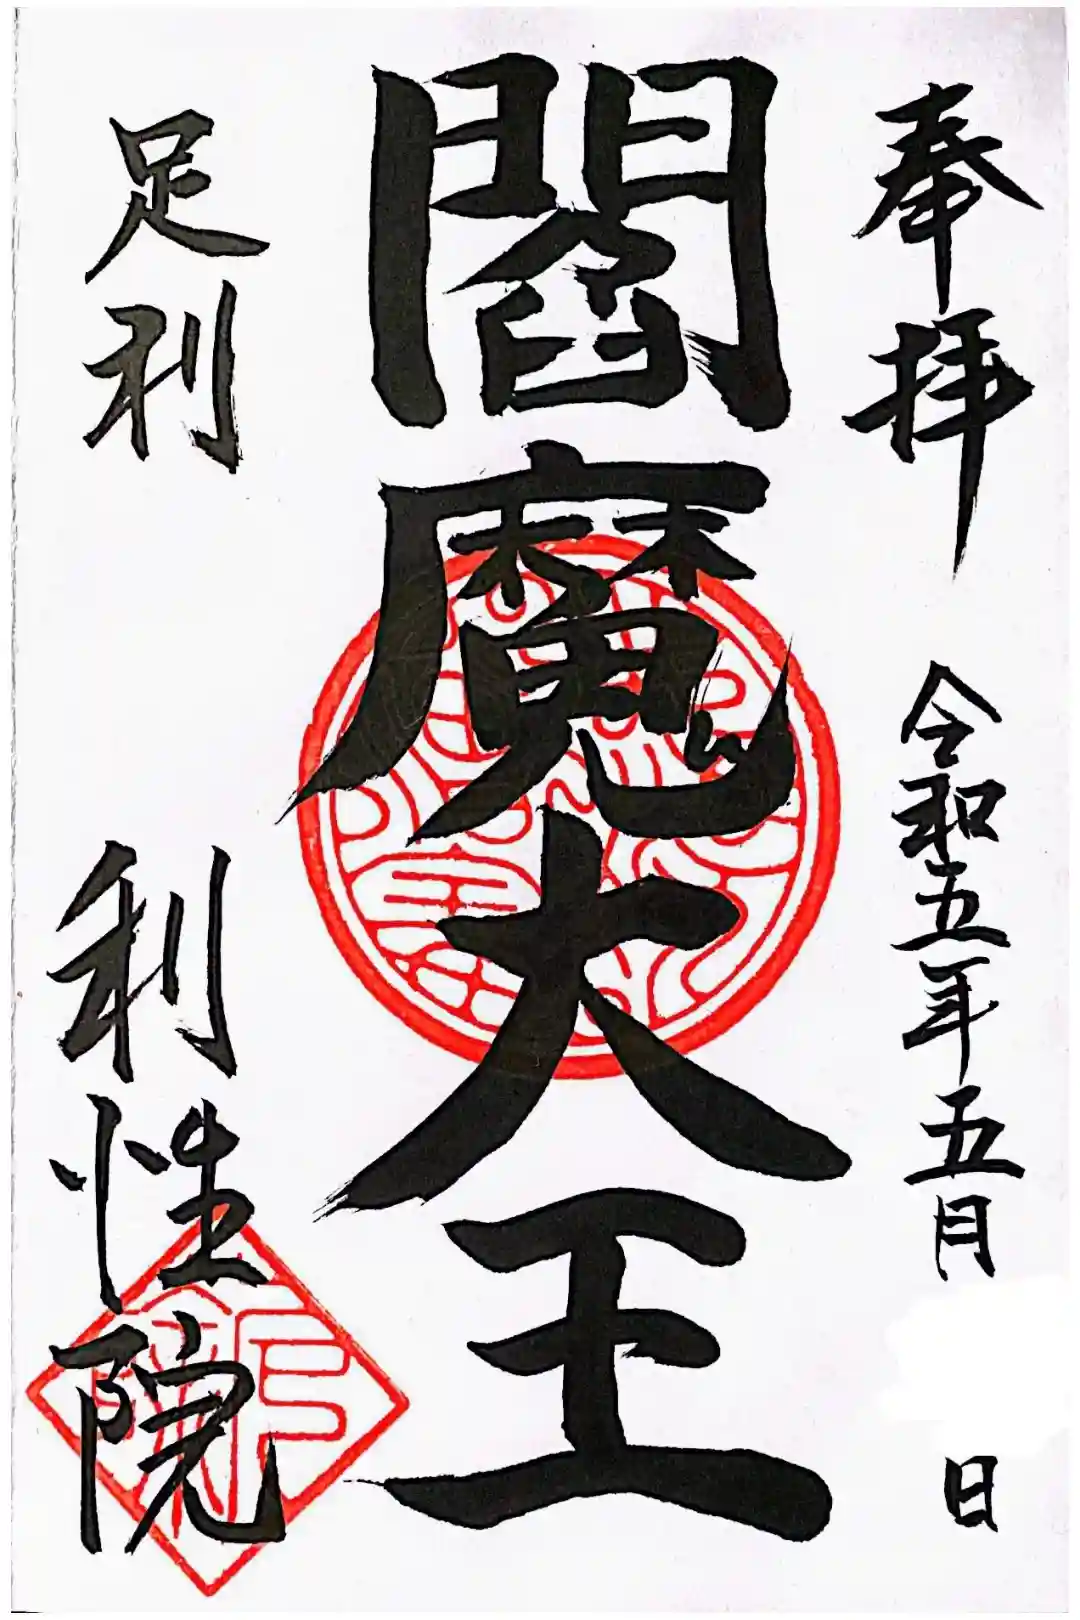 奉拝 令和五年五月 日
閻魔大王
足利 利性院